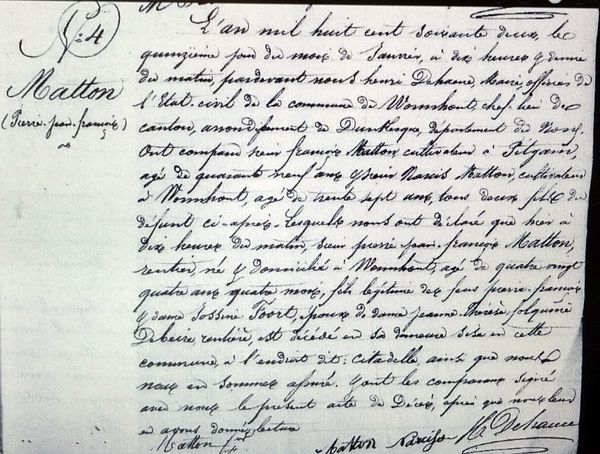 N° 4
Matton
(Pierre-Jean-françois)
L'an mil huit cent soixante deux, le
quinzième jour du mois de Janvier, à dix heures & demie
du matin, pardevant nous henri Dehaene, Maire, officier de
l'Etat-civil de la commune de Wormhout, chef-lieu de
canton, arrondissement de Dunkerque, département du Nord,
Ont comparu sieur françois Matton, cultivateur à
agé de quarante neuf ans, & sieur Narcis Matton, cultivateur
à Wormhout, agé de trente sept ans, tous deux fils du
défunt ci-après. Lesquels nous ont déclaré que hier à
dix heures du matin, sieur pierre-jean-françois Matton,
rentier, né & domicilié à Wormhout, agé de quatre vingt
quatre ans quatre mois, fils légitime des feus pierre-françois
& dame Toort, époux de dame jeanne-Thérèse
Debeire, rentière, est décédé en sa demeure sise en cette
commune, à l'endroit dit: Citadelle ainsi que nous
nous en sommes assuré. & ont les comparans signé
avec nous le présent acte de Décès, après que nous leur
en avons donné lecture
Matton Matton Narcisse H Dehaene